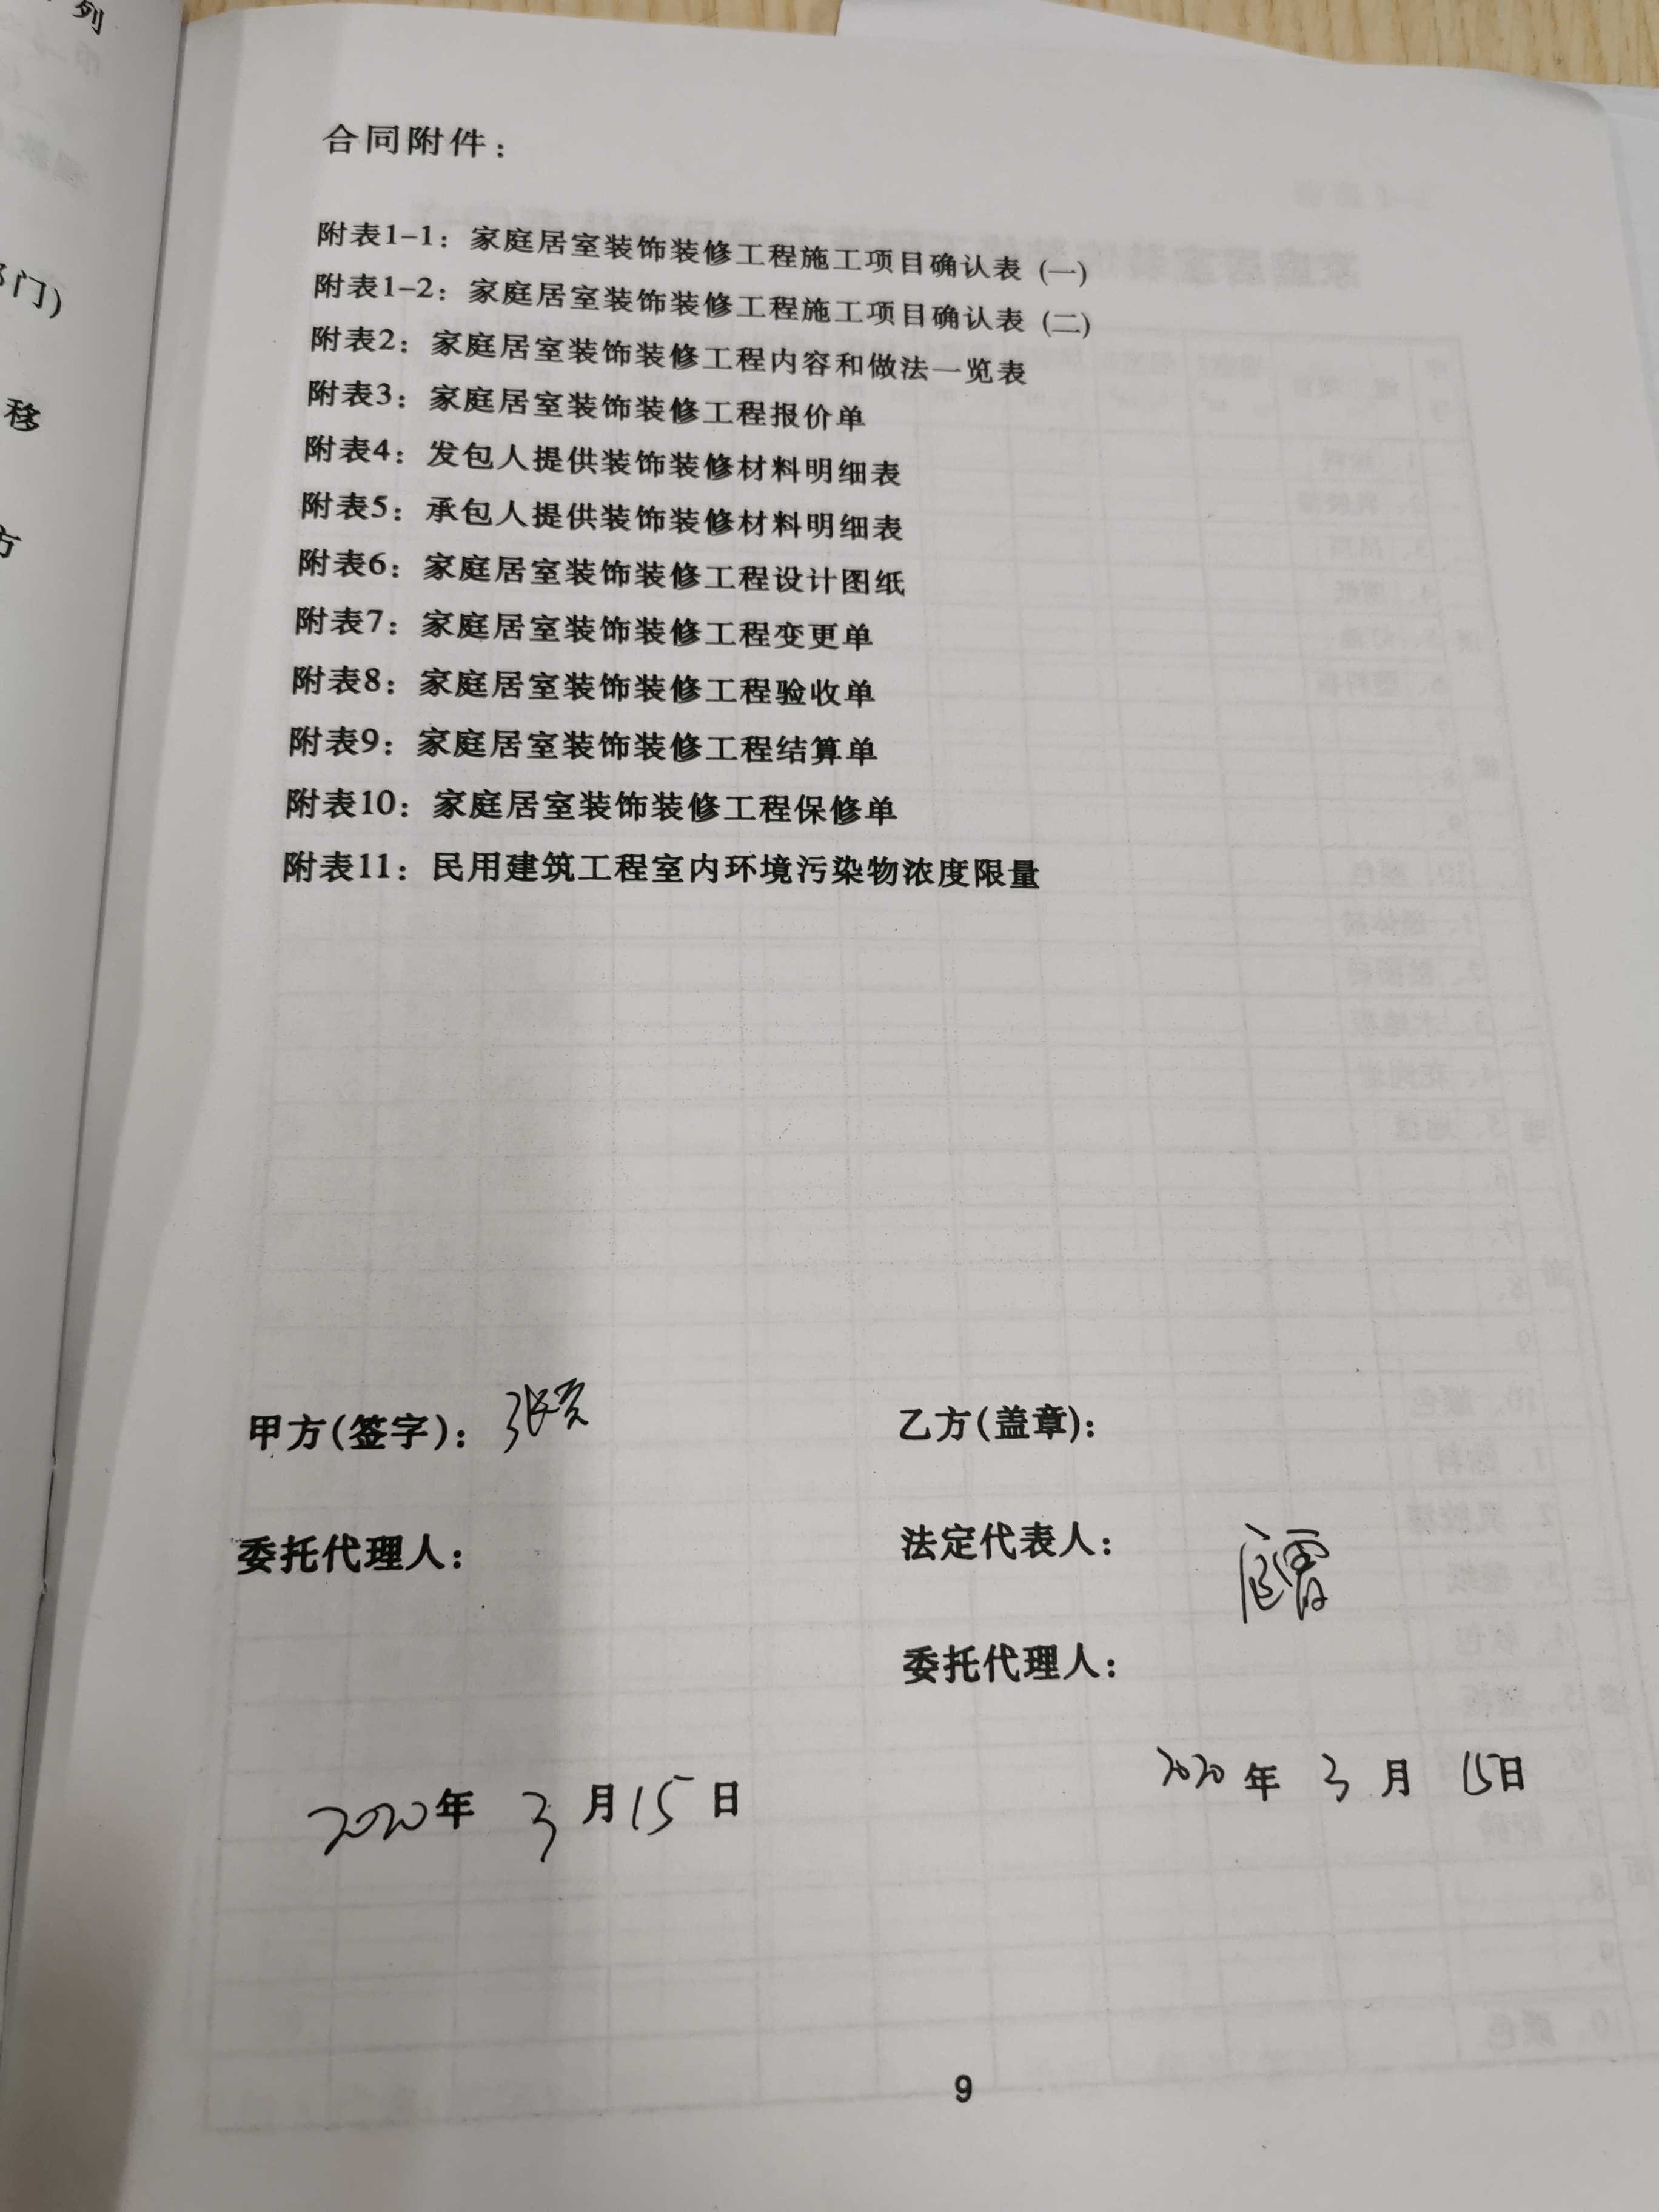 合同附件：
附表1-1：家庭居室装饰装修工程施工项目确认表 (一)
附表1-2：家庭居室装饰装修工程施工项目确认表 (二)
附表2：家庭居室装饰装修工程内容和做法一览表
附表3：家庭居室装饰装修工程报价单
附表4：发包人提供装饰装修材料明细表
附表5：承包人提供装饰装修材料明细表
附表6：家庭居室装饰装修工程设计图纸
附表7：家庭居室装饰装修工程变更单
附表8：家庭居室装饰装修工程验收单
附表9：家庭居室装饰装修工程结算单
附表10：家庭居室装饰装修工程保修单
附表11：民用建筑工程室内环境污染物浓度限量
甲方(签字)：
乙方(盖章)：
委托代理人：
法定代表人：
委托代理人：
2020年 3 月 15 日
2020 年 3 月 15日
9